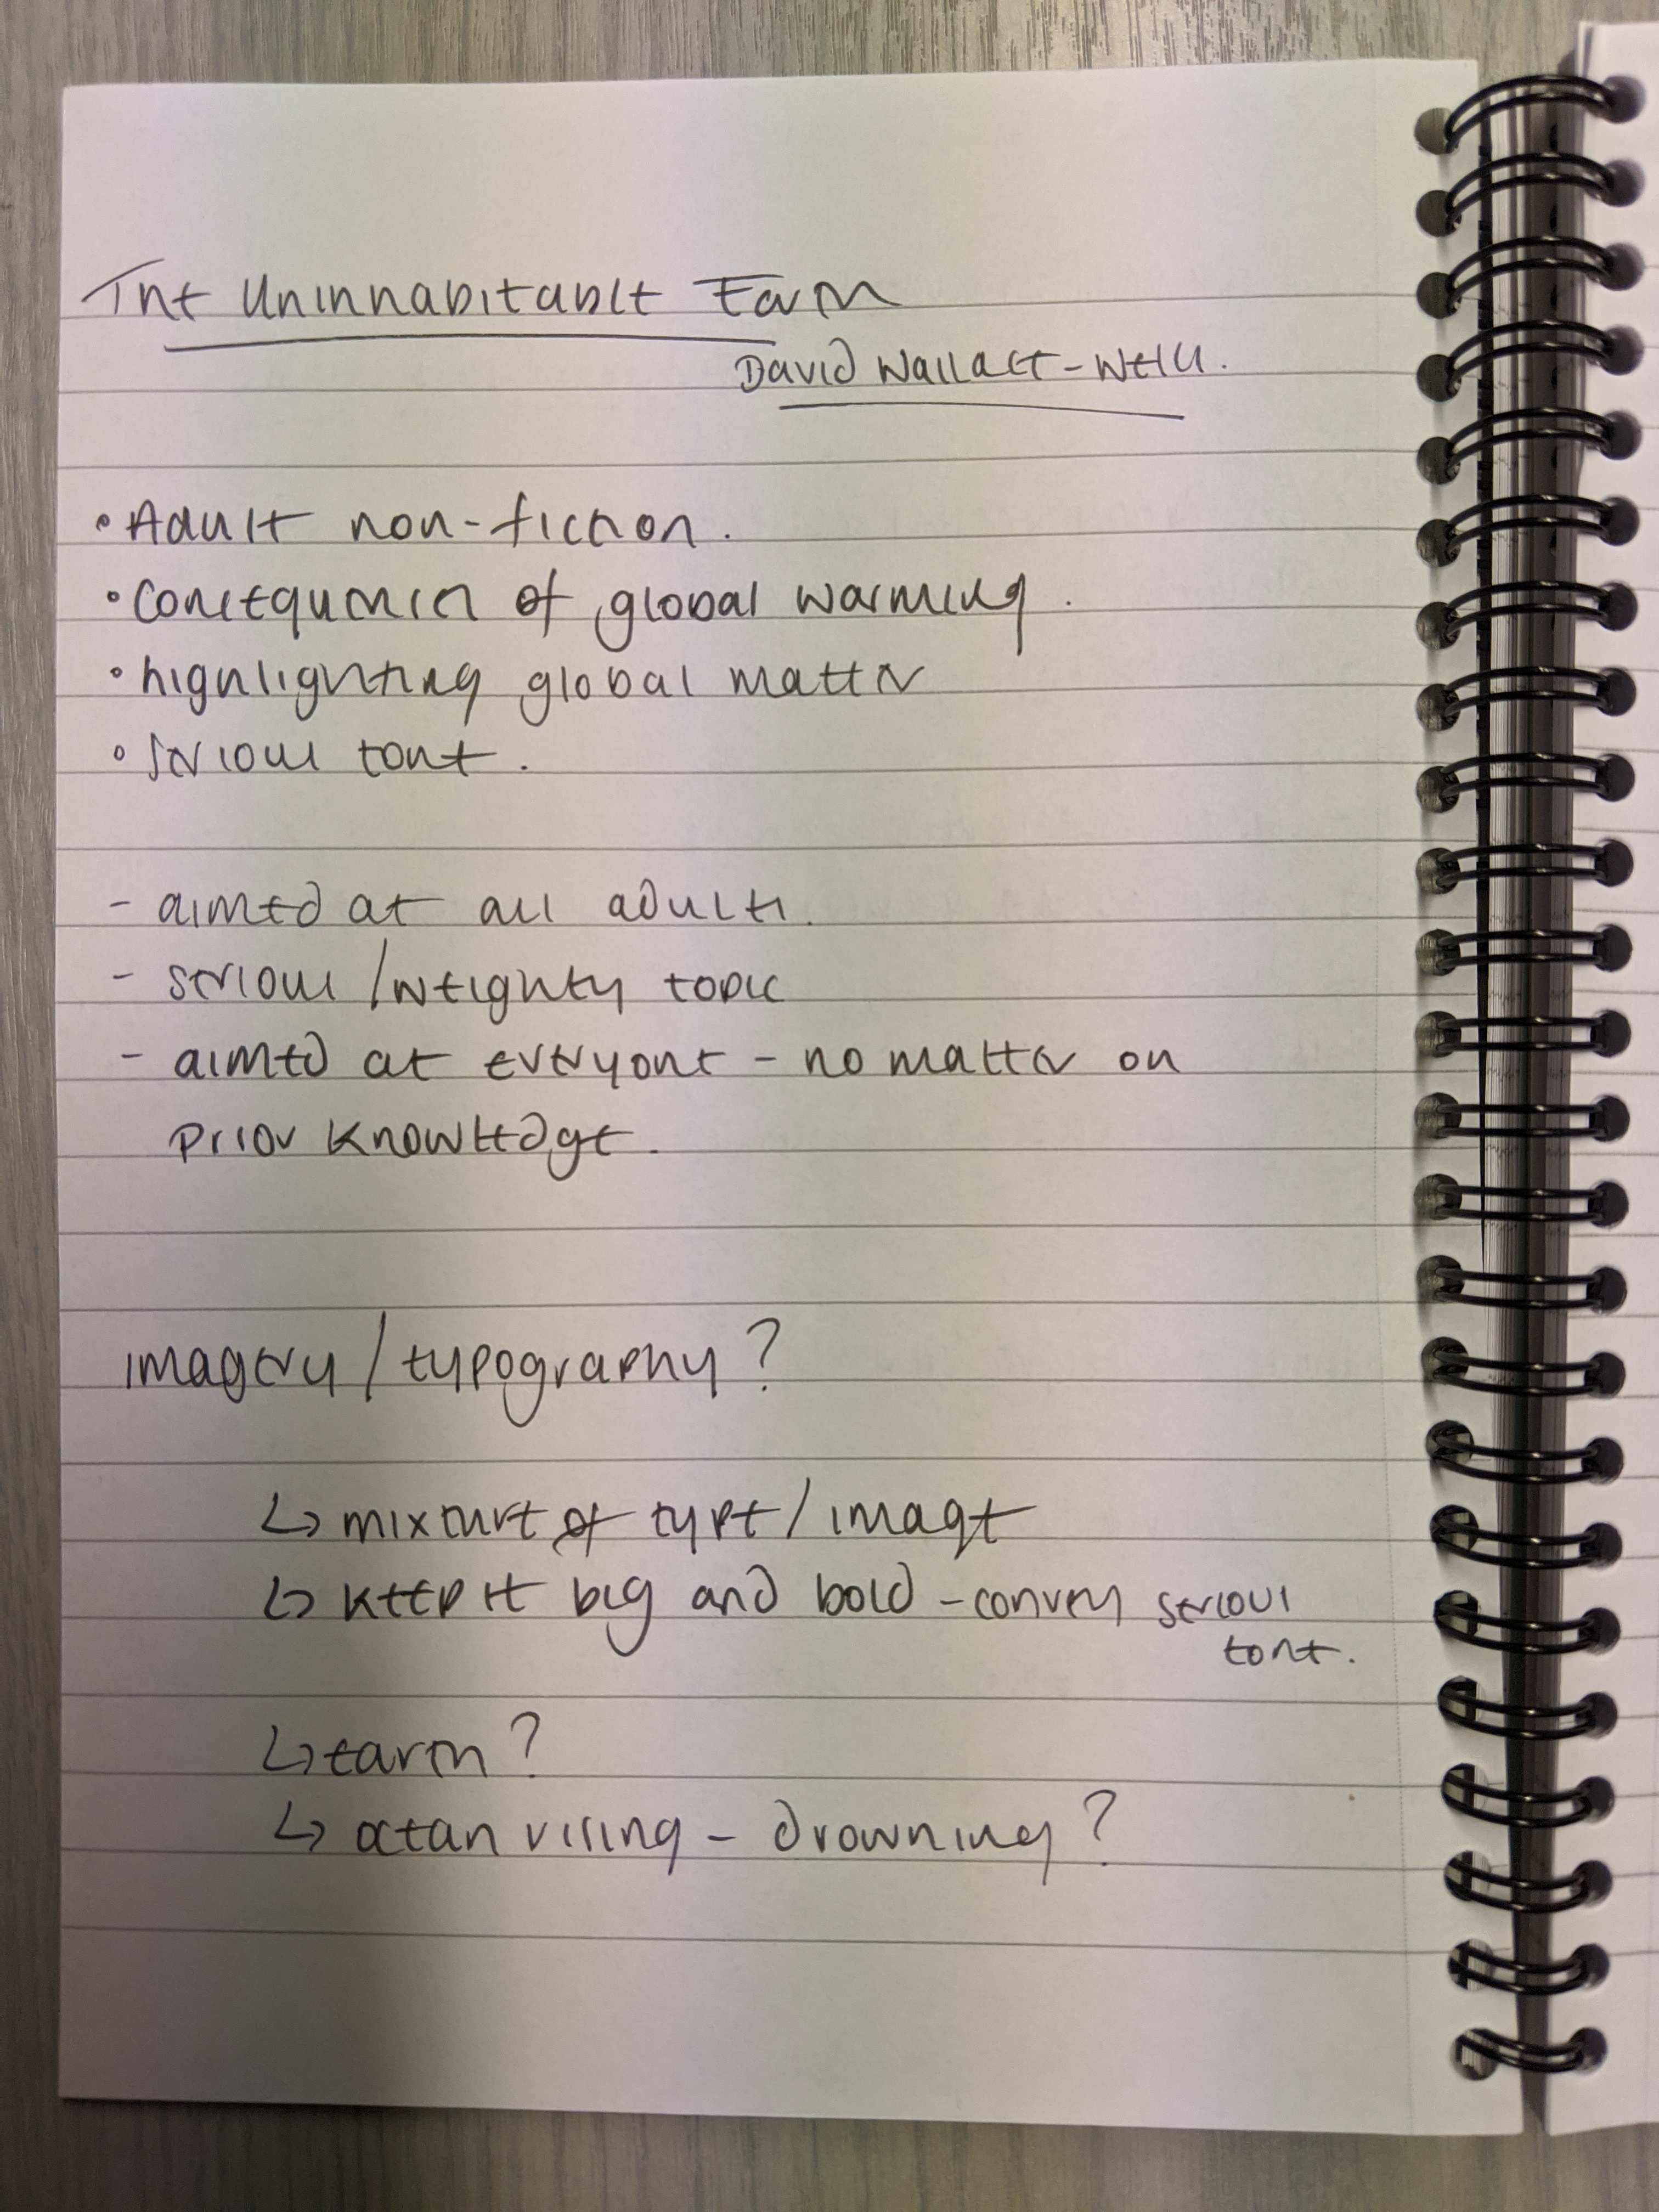 The Uninhabitable Earth
David Wallace-Wells.
• Adult non-fiction.
• Consequences of global warming.
• highlighting global matter
• Serious tone.
- aimed at all adults.
- serious/weighty topic
- aimed at everyone - no matter on
prior knowledge.
imagery/typography?
↳ mixture of type/image
↳ keep it big and bold - convey serious
tone.
↳ earth?
↳ ocean rising - drowning?